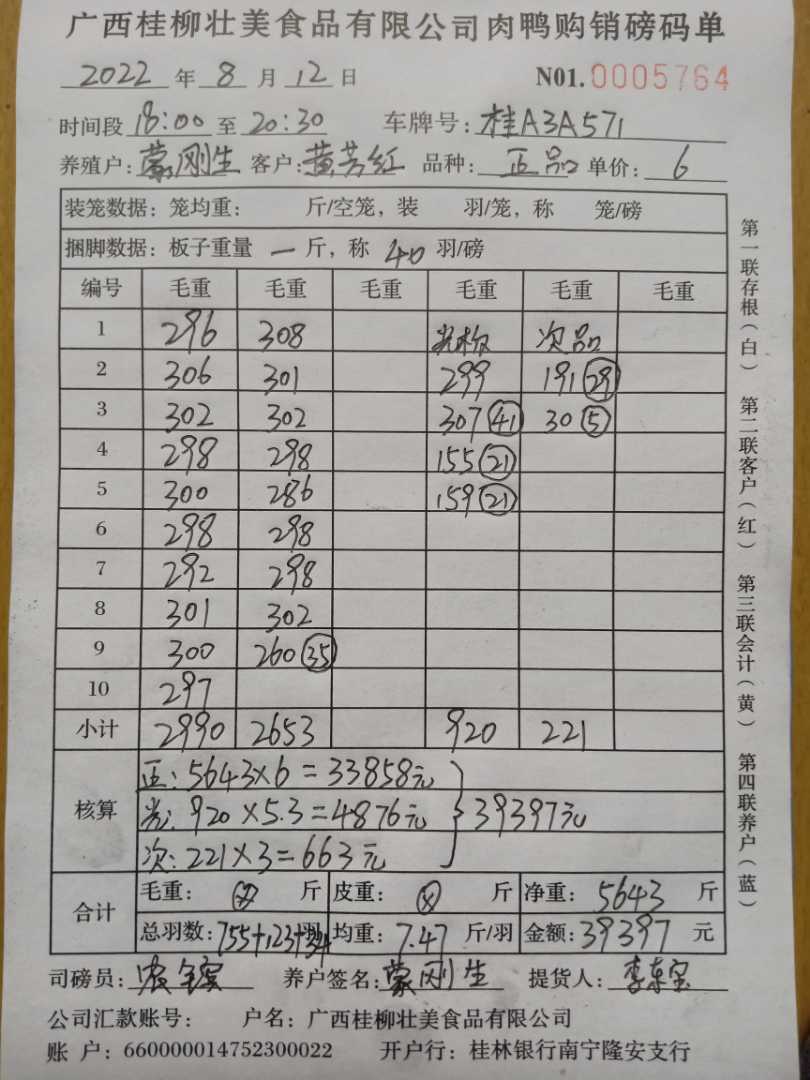 广西桂柳壮美食品有限公司肉鸭购销磅码单
2022 年 8 月 12 日 N01.0005764
时间段 18:00 至 20:30 车牌号: 桂A3A571
养殖户: 蒙刚生 客户: 黄芳红 品种: 正品 单价: 6
装笼数据: 笼均重: 斤/空笼, 装 羽/笼, 称 笼/磅
捆脚数据: 板子重量 一 斤, 称 40 羽/磅
编号 毛重 毛重 毛重 毛重 毛重 毛重
1 296 308 次品
2 306 301 299 191 29
3 302 302 307 41 30 5
4 298 298 155 21
5 300 286 159 21
6 298 298
7 292 298
8 301 302
9 300 260 35
10 297
小计 2990 2653 920 221
核算
正: 5643×6=33858元
920×5.3=4876元 39397元
次: 221×3=663元
合计
毛重: 斤 皮重: 斤 净重: 5643 斤
总羽数: 755+123+34 羽 均重: 7.47 斤/羽 金额: 39397 元
司磅员: 养户签名: 蒙刚生 提货人: 李东宝
公司汇款账号: 户名: 广西桂柳壮美食品有限公司
账 户: 660000014752300022 开户行: 桂林银行南宁隆安支行
第一联存根(白) 第二联客户(红) 第三联会计(黄) 第四联养户(蓝)